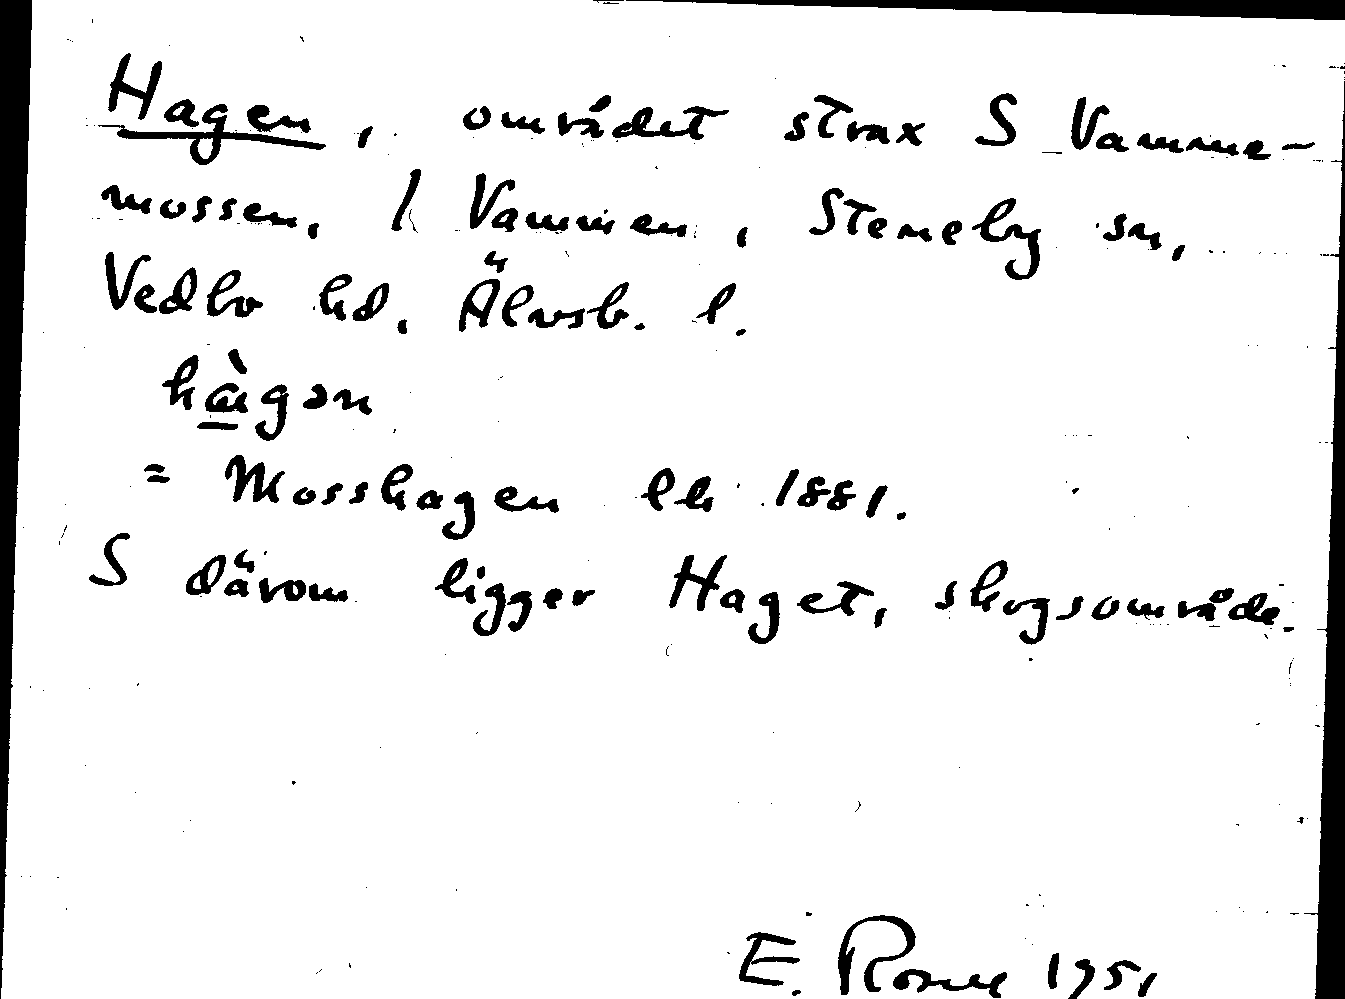 Hagen, området strax S Vamme-
mossen, 1 Vammen, Steneby sn,
Vedbo hd, Älvsb. l.
hàgən
= Mosshagen lh 1881.
S därom ligger Haget, skogsområde.
E. 1951